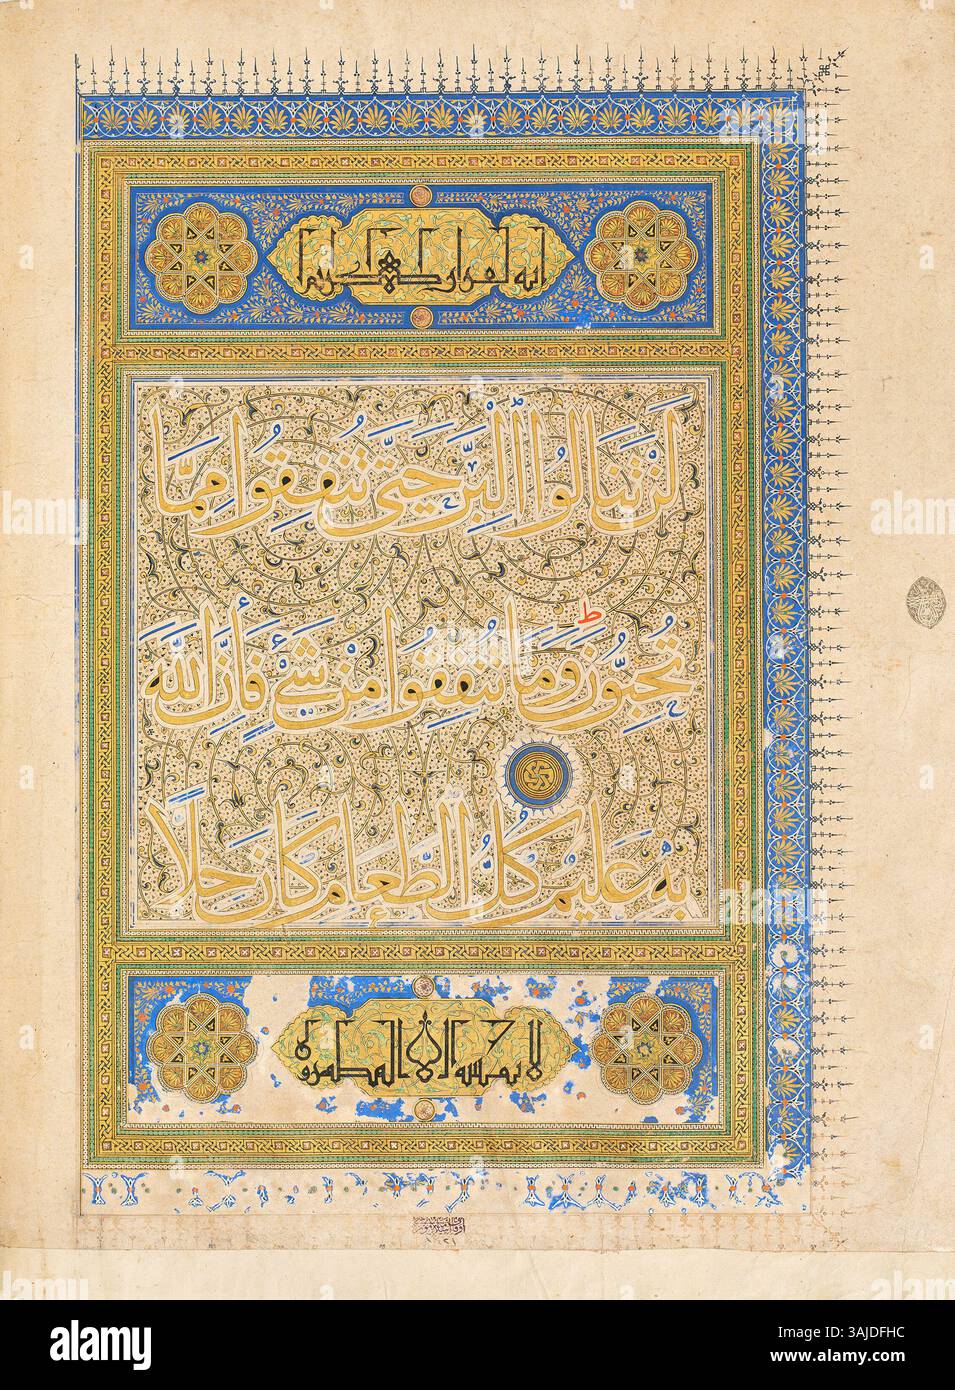 انه لقرآن كريم
لَنْ تَنَالُوا الْبِرَّ حَتَّى تُنْفِقُوا مِمَّا
تُحِبُّونَ وَمَا تُنْفِقُوا مِنْ شَيْءٍ فَإِنَّ اللَّهَ
بِهِ عَلِيمٌ كُلُّ الطَّعَامِ كَانَ حِلًّا
لا يمسه الا المطهرون
alamy
Image ID: 3AJDFHC
www.alamy.com